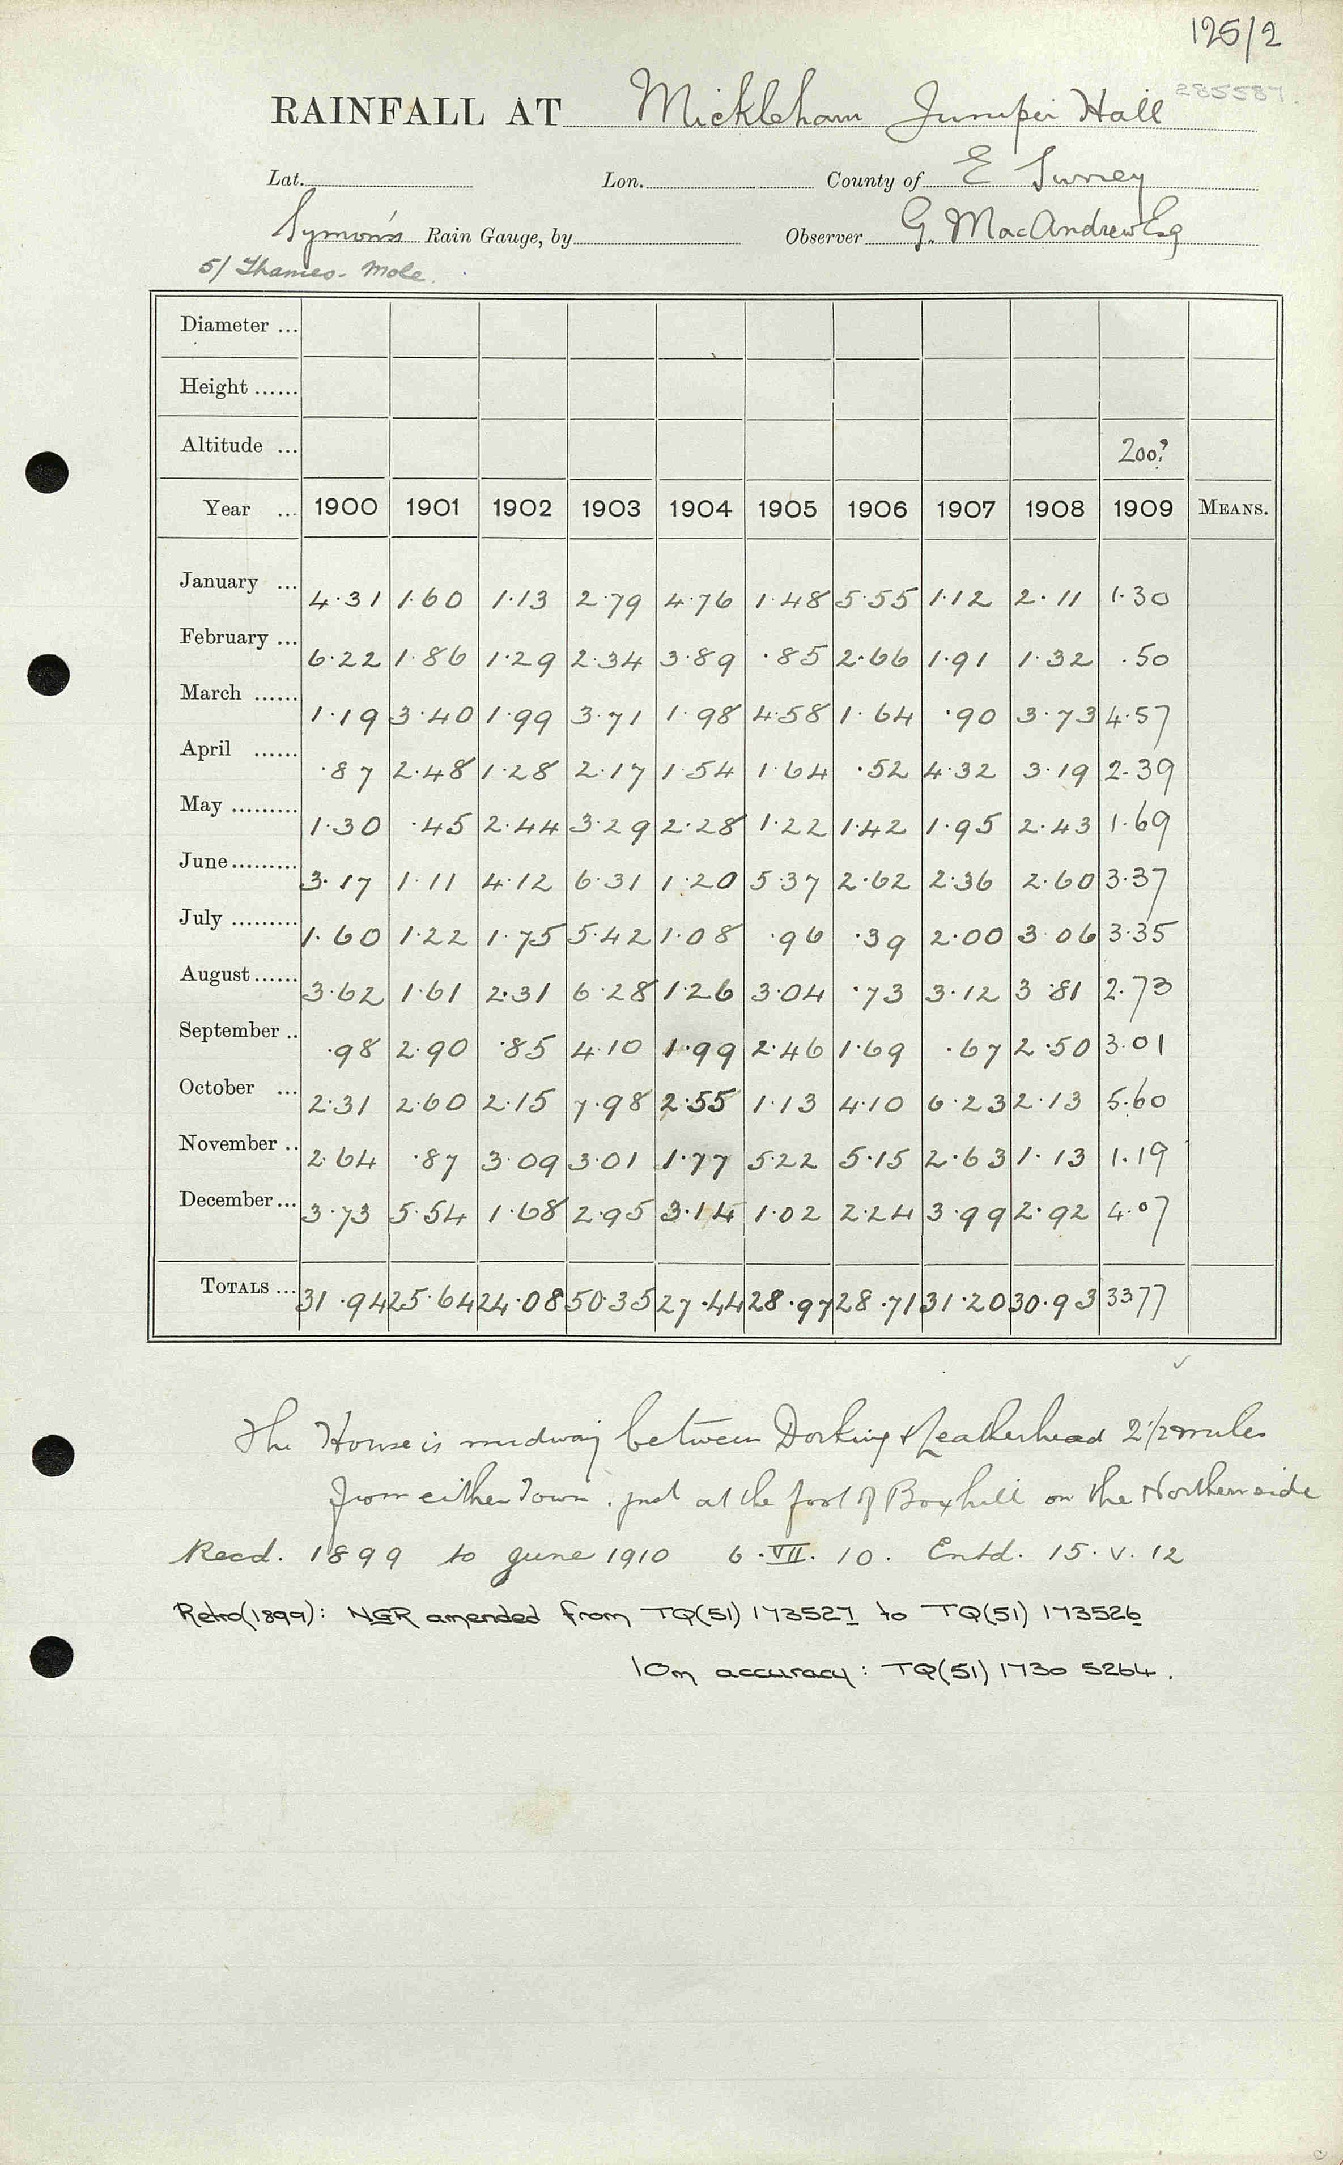 125/2
285587
RAINFALL AT Mickleham Juniper Hall
Lat. Lon. County of E Surrey
Symon's Rain Gauge, by Observer G. MacAndrew Esq
5/ Thames - Mole.
Diameter ...
Height ......
Altitude ... 200?
Year ... 1900 1901 1902 1903 1904 1905 1906 1907 1908 1909 MEANS.
January ... 4.31 1.60 1.13 2.79 4.76 1.48 5.55 1.12 2.11 1.30
February ... 6.22 1.86 1.29 2.34 3.89 .85 2.66 1.91 1.32 .50
March ...... 1.19 3.40 1.99 3.71 1.98 4.58 1.64 .90 3.73 4.57
April ...... .87 2.48 1.28 2.17 1.54 1.64 .52 4.32 3.19 2.39
May ......... 1.30 .45 2.44 3.29 2.28 1.22 1.42 1.95 2.43 1.69
June ......... 3.17 1.11 4.12 6.31 1.20 5.37 2.62 2.36 2.60 3.37
July ......... 1.60 1.22 1.75 5.42 1.08 .96 .39 2.00 3.06 3.35
August ...... 3.62 1.61 2.31 6.28 1.26 3.04 .73 3.12 3.81 2.73
September .. .98 2.90 .85 4.10 1.99 2.46 1.69 .67 2.50 3.01
October ... 2.31 2.60 2.15 7.98 2.55 1.13 4.10 6.23 2.13 5.60
November .. 2.64 .87 3.09 3.01 1.77 5.22 5.15 2.63 1.13 1.19
December ... 3.73 5.54 1.68 2.95 3.14 1.02 2.24 3.99 2.92 4.07
TOTALS ... 31.94 25.64 24.08 50.35 27.44 28.97 28.71 31.20 30.93 33 77
The House is midway between Dorking & Leatherhead 2 1/2 miles
from either Town. just at the foot of Boxhill on the Northern side
Recd. 1899 to June 1910 6.VII.10. Entd. 15.V.12
Retro(1899): NGR amended from TQ(51) 173527 to TQ(51) 173526
10m accuracy: TQ(51) 1730 5264.